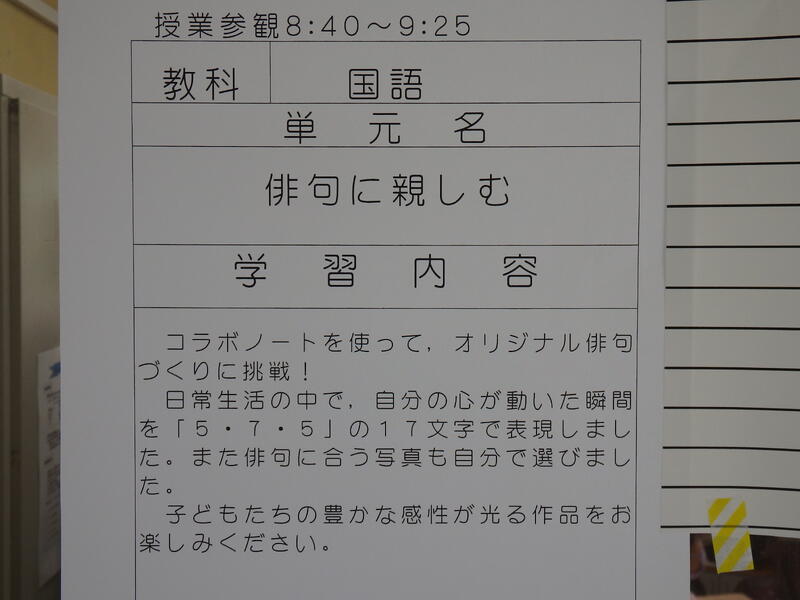 授業参観8:40～9:25
教科 国語
単元名
俳句に親しむ
学習内容
コラボノートを使って，オリジナル俳句
づくりに挑戦！
日常生活の中で，自分の心が動いた瞬間
を「５・７・５」の１７文字で表現しまし
た。また俳句に合う写真も自分で選びまし
た。
子どもたちの豊かな感性が光る作品をお
楽しみください。